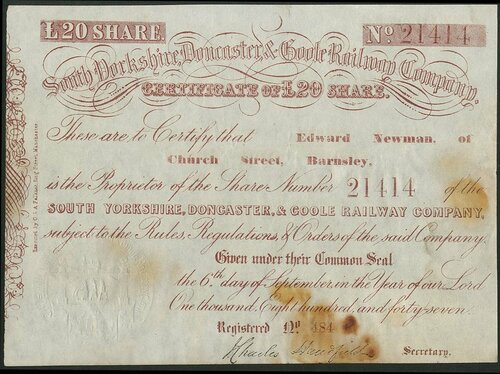 £20 SHARE.
No. 21414
South Yorkshire, Doncaster, & Goole Railway Company.
CERTIFICATE OF £20 SHARE.
These are to Certify that Edward Newman, of
Church Street, Barnsley,
is the Proprietor of the Share Number 21414 of the
SOUTH YORKSHIRE, DONCASTER, & GOOLE RAILWAY COMPANY,
subject to the Rules, Regulations, & Orders of the said Company.
Given under their Common Seal
the 6th day of September, in the Year of our Lord
One thousand, Eight hundred, and forty-seven.
Registered No. 484
Charles
Secretary.